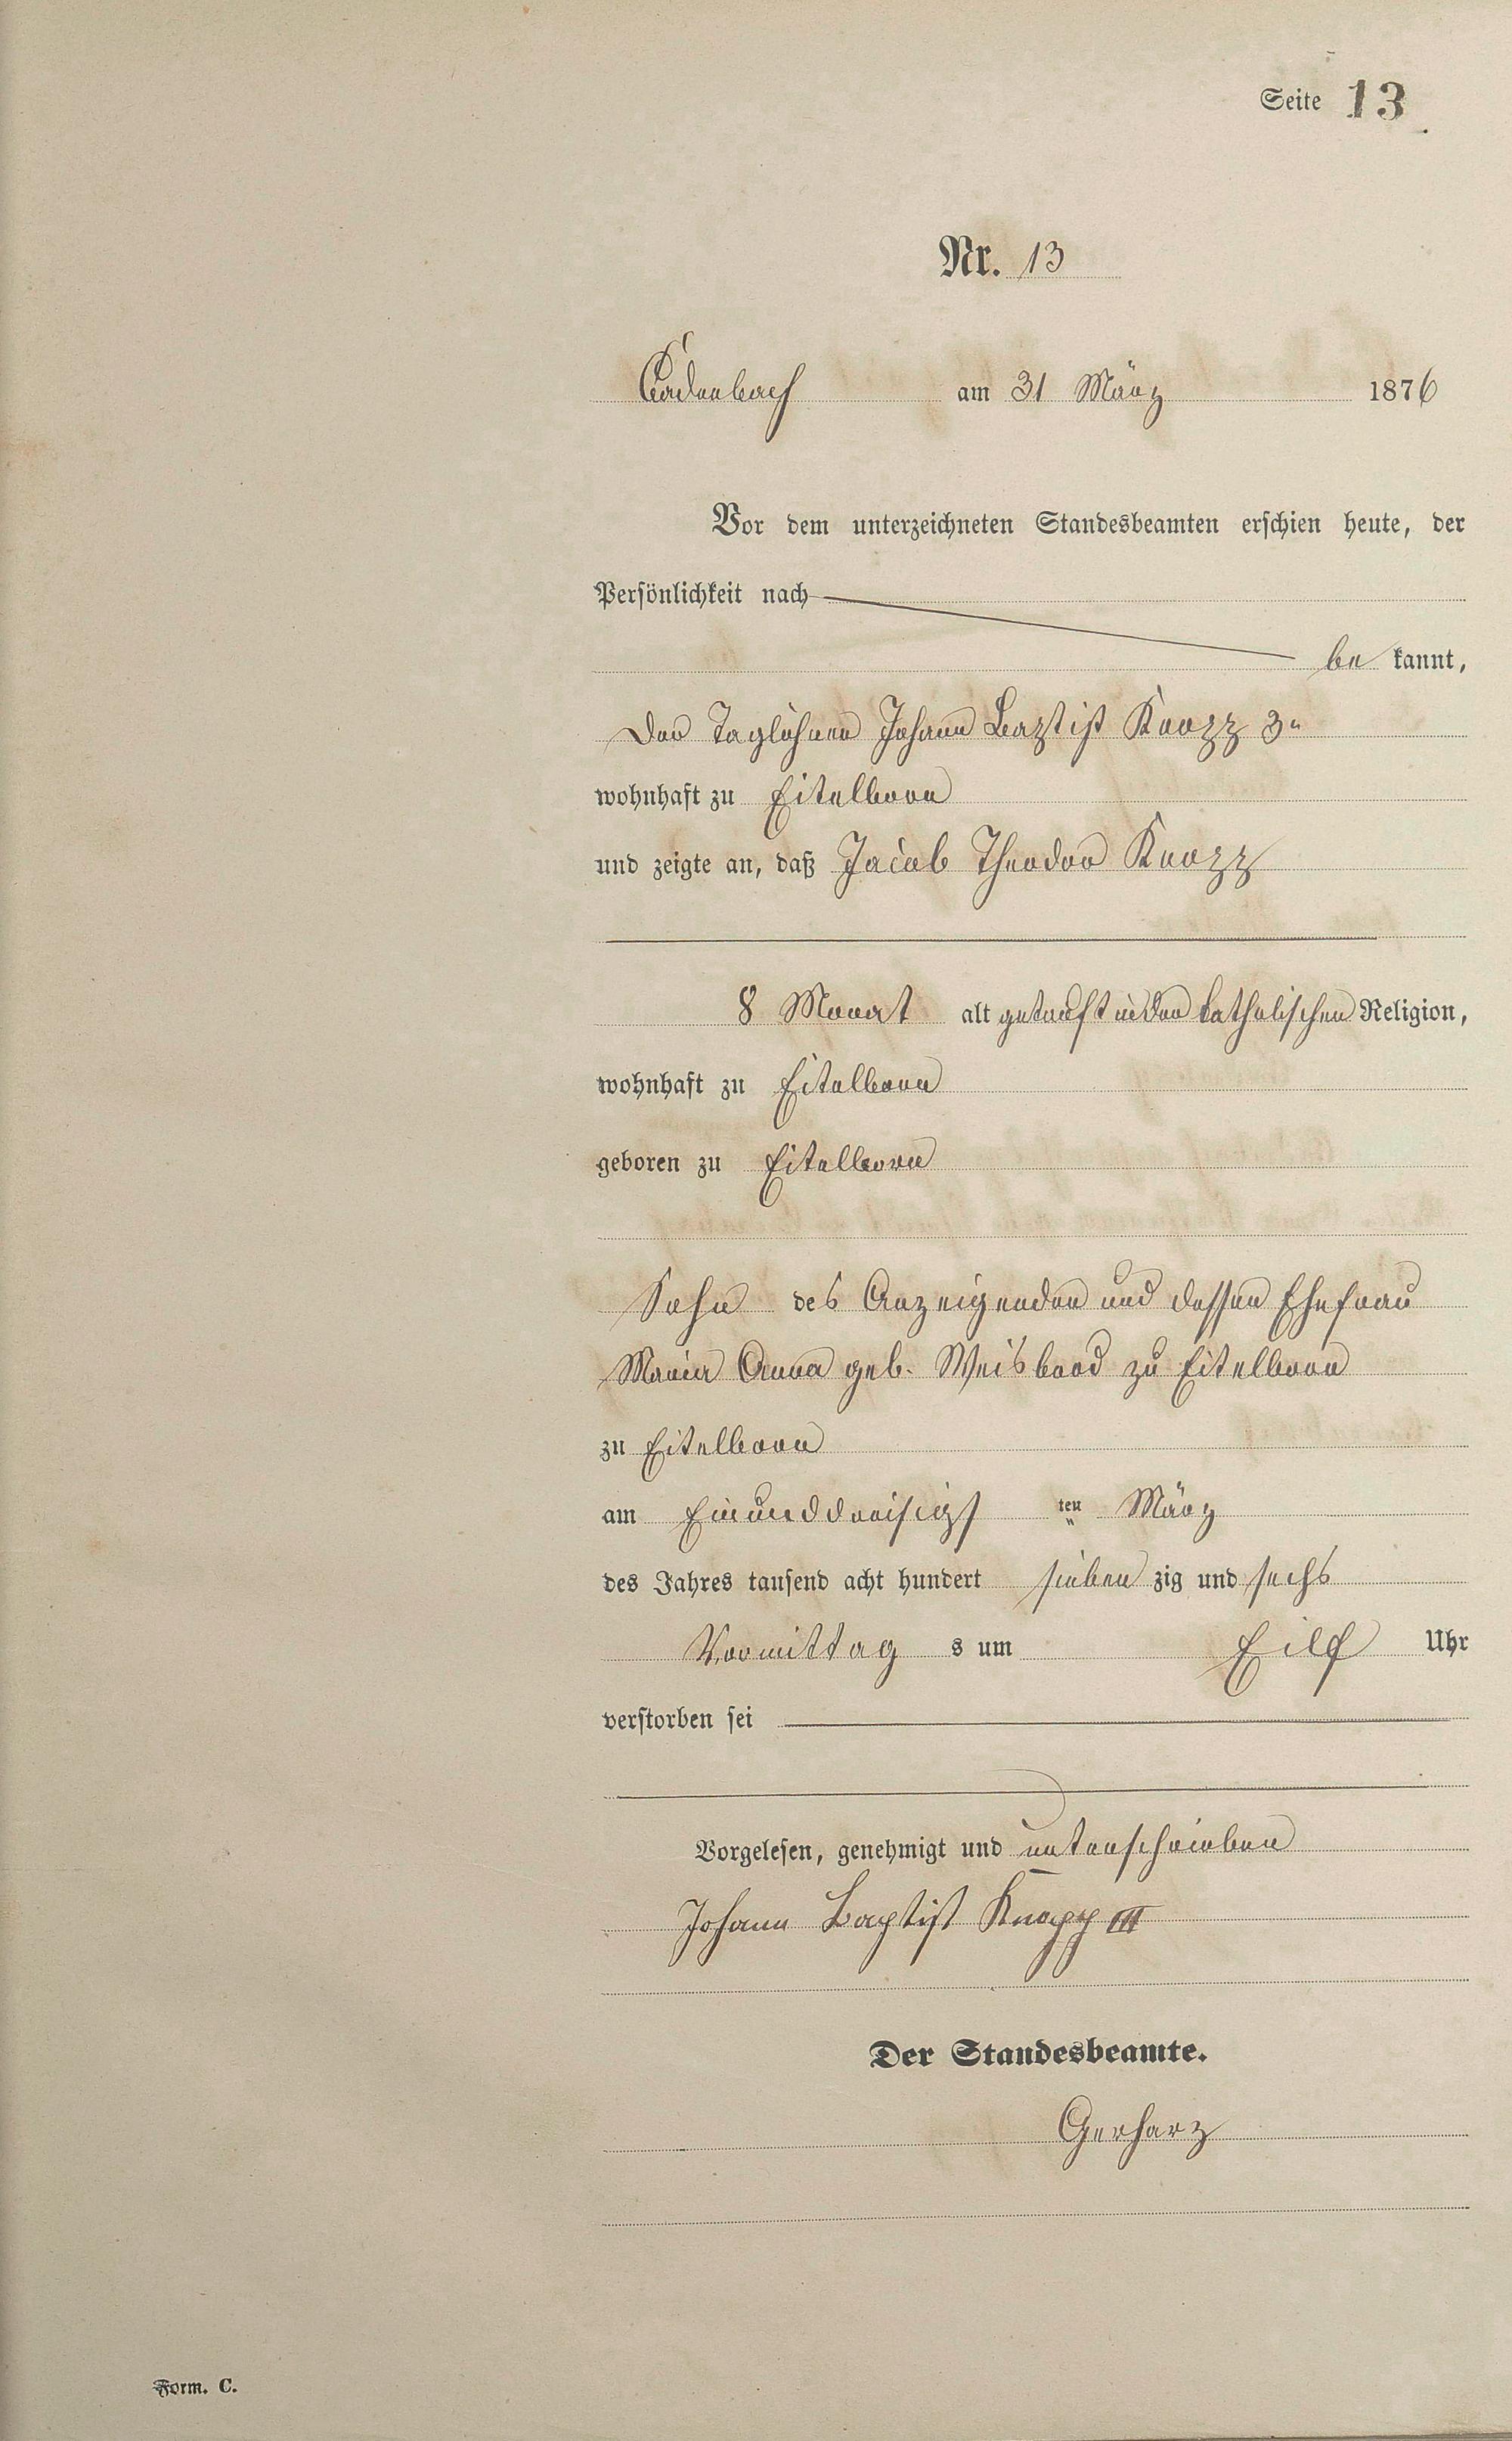 Seite 13
Nr. 13
Cadenbach am 31 März 1876
Vor dem unterzeichneten Standesbeamten erschien heute, der
Persönlichkeit nach
be kannt,
Der Taglöhner Johann Baptist Knopp 3r
wohnhaft zu Eitelborn
und zeigte an, daß Jacob Theodor Knopp
8 Monat alt getauft in der katholischen Religion,
wohnhaft zu Eitelborn
geboren zu Eitelborn
Sohn des Anzeigenden und dessen Ehefrau
Maria Anna geb. Weisbrod zu Eitelborn
zu Eitelborn
am Einunddreisigs ten März
des Jahres tausend acht hundert sieben zig und sechs
Vormittag s um Eilf Uhr
verstorben sei
Vorgelesen, genehmigt und unterschrieben
Johann Baptist Knopp III
Der Standesbeamte.
Gerharz
Form. C.